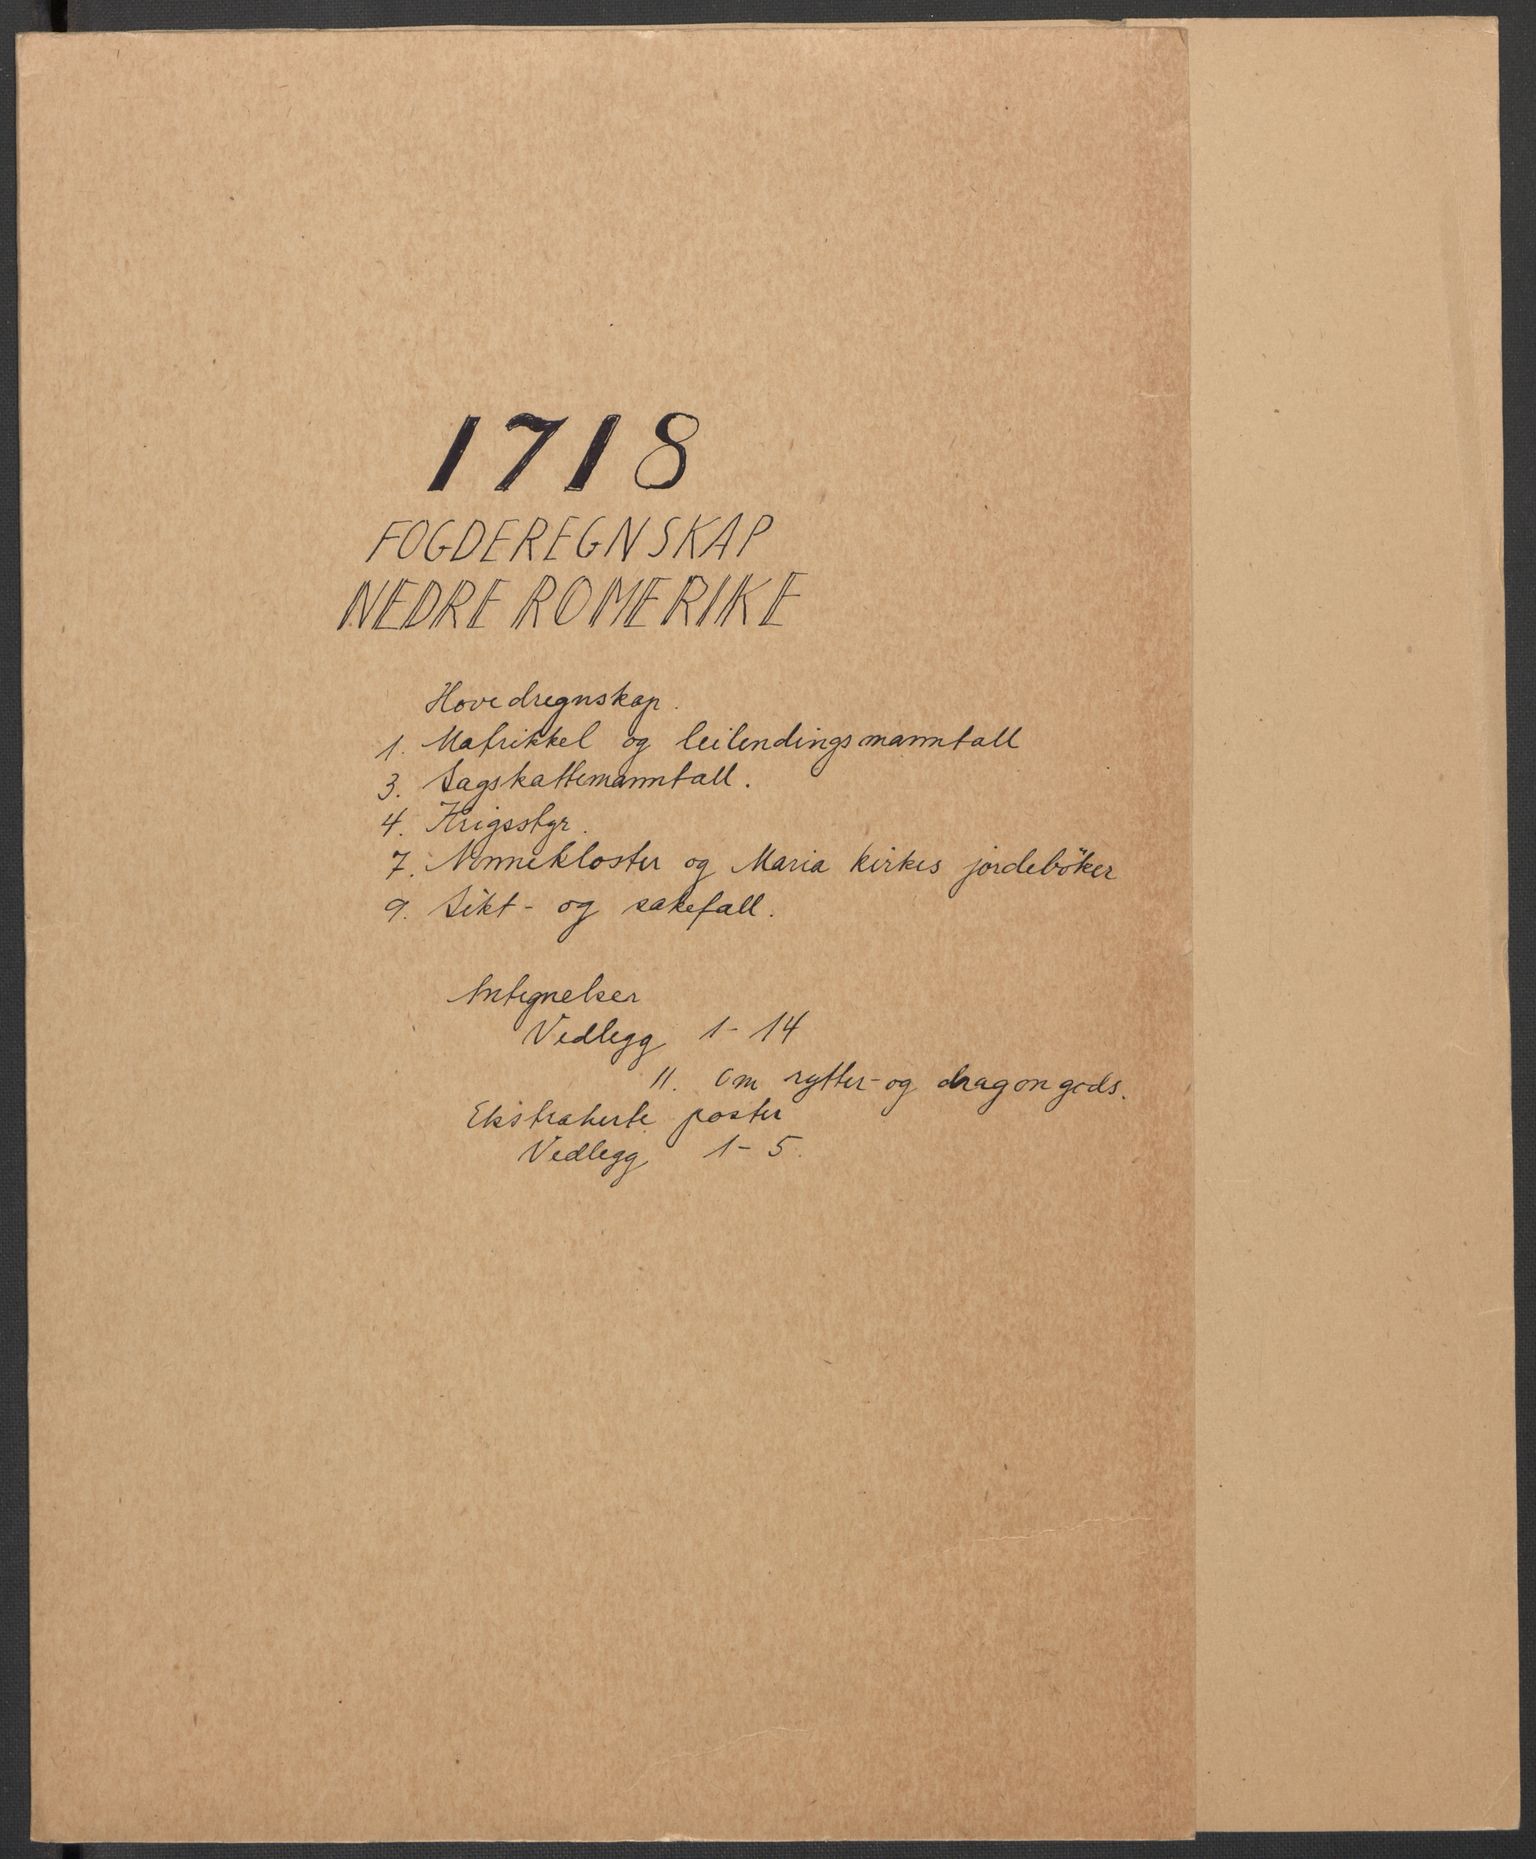 1718
FOGDEREGNSKAP
NEDRE ROMERIKE
Hovedregnskap.
1. Matrikkel og leilendingsmanntall
3. Sagskattemanntall.
4. Krigsstyr.
7. Nonnekloster og Maria kirkes jordeböker
9. Sikt- og sakefall.
Antegnelser
Vedlegg 1-14
11. Om rytter- og dragongods.
Ekstraherte poster
Vedlegg 1-5.